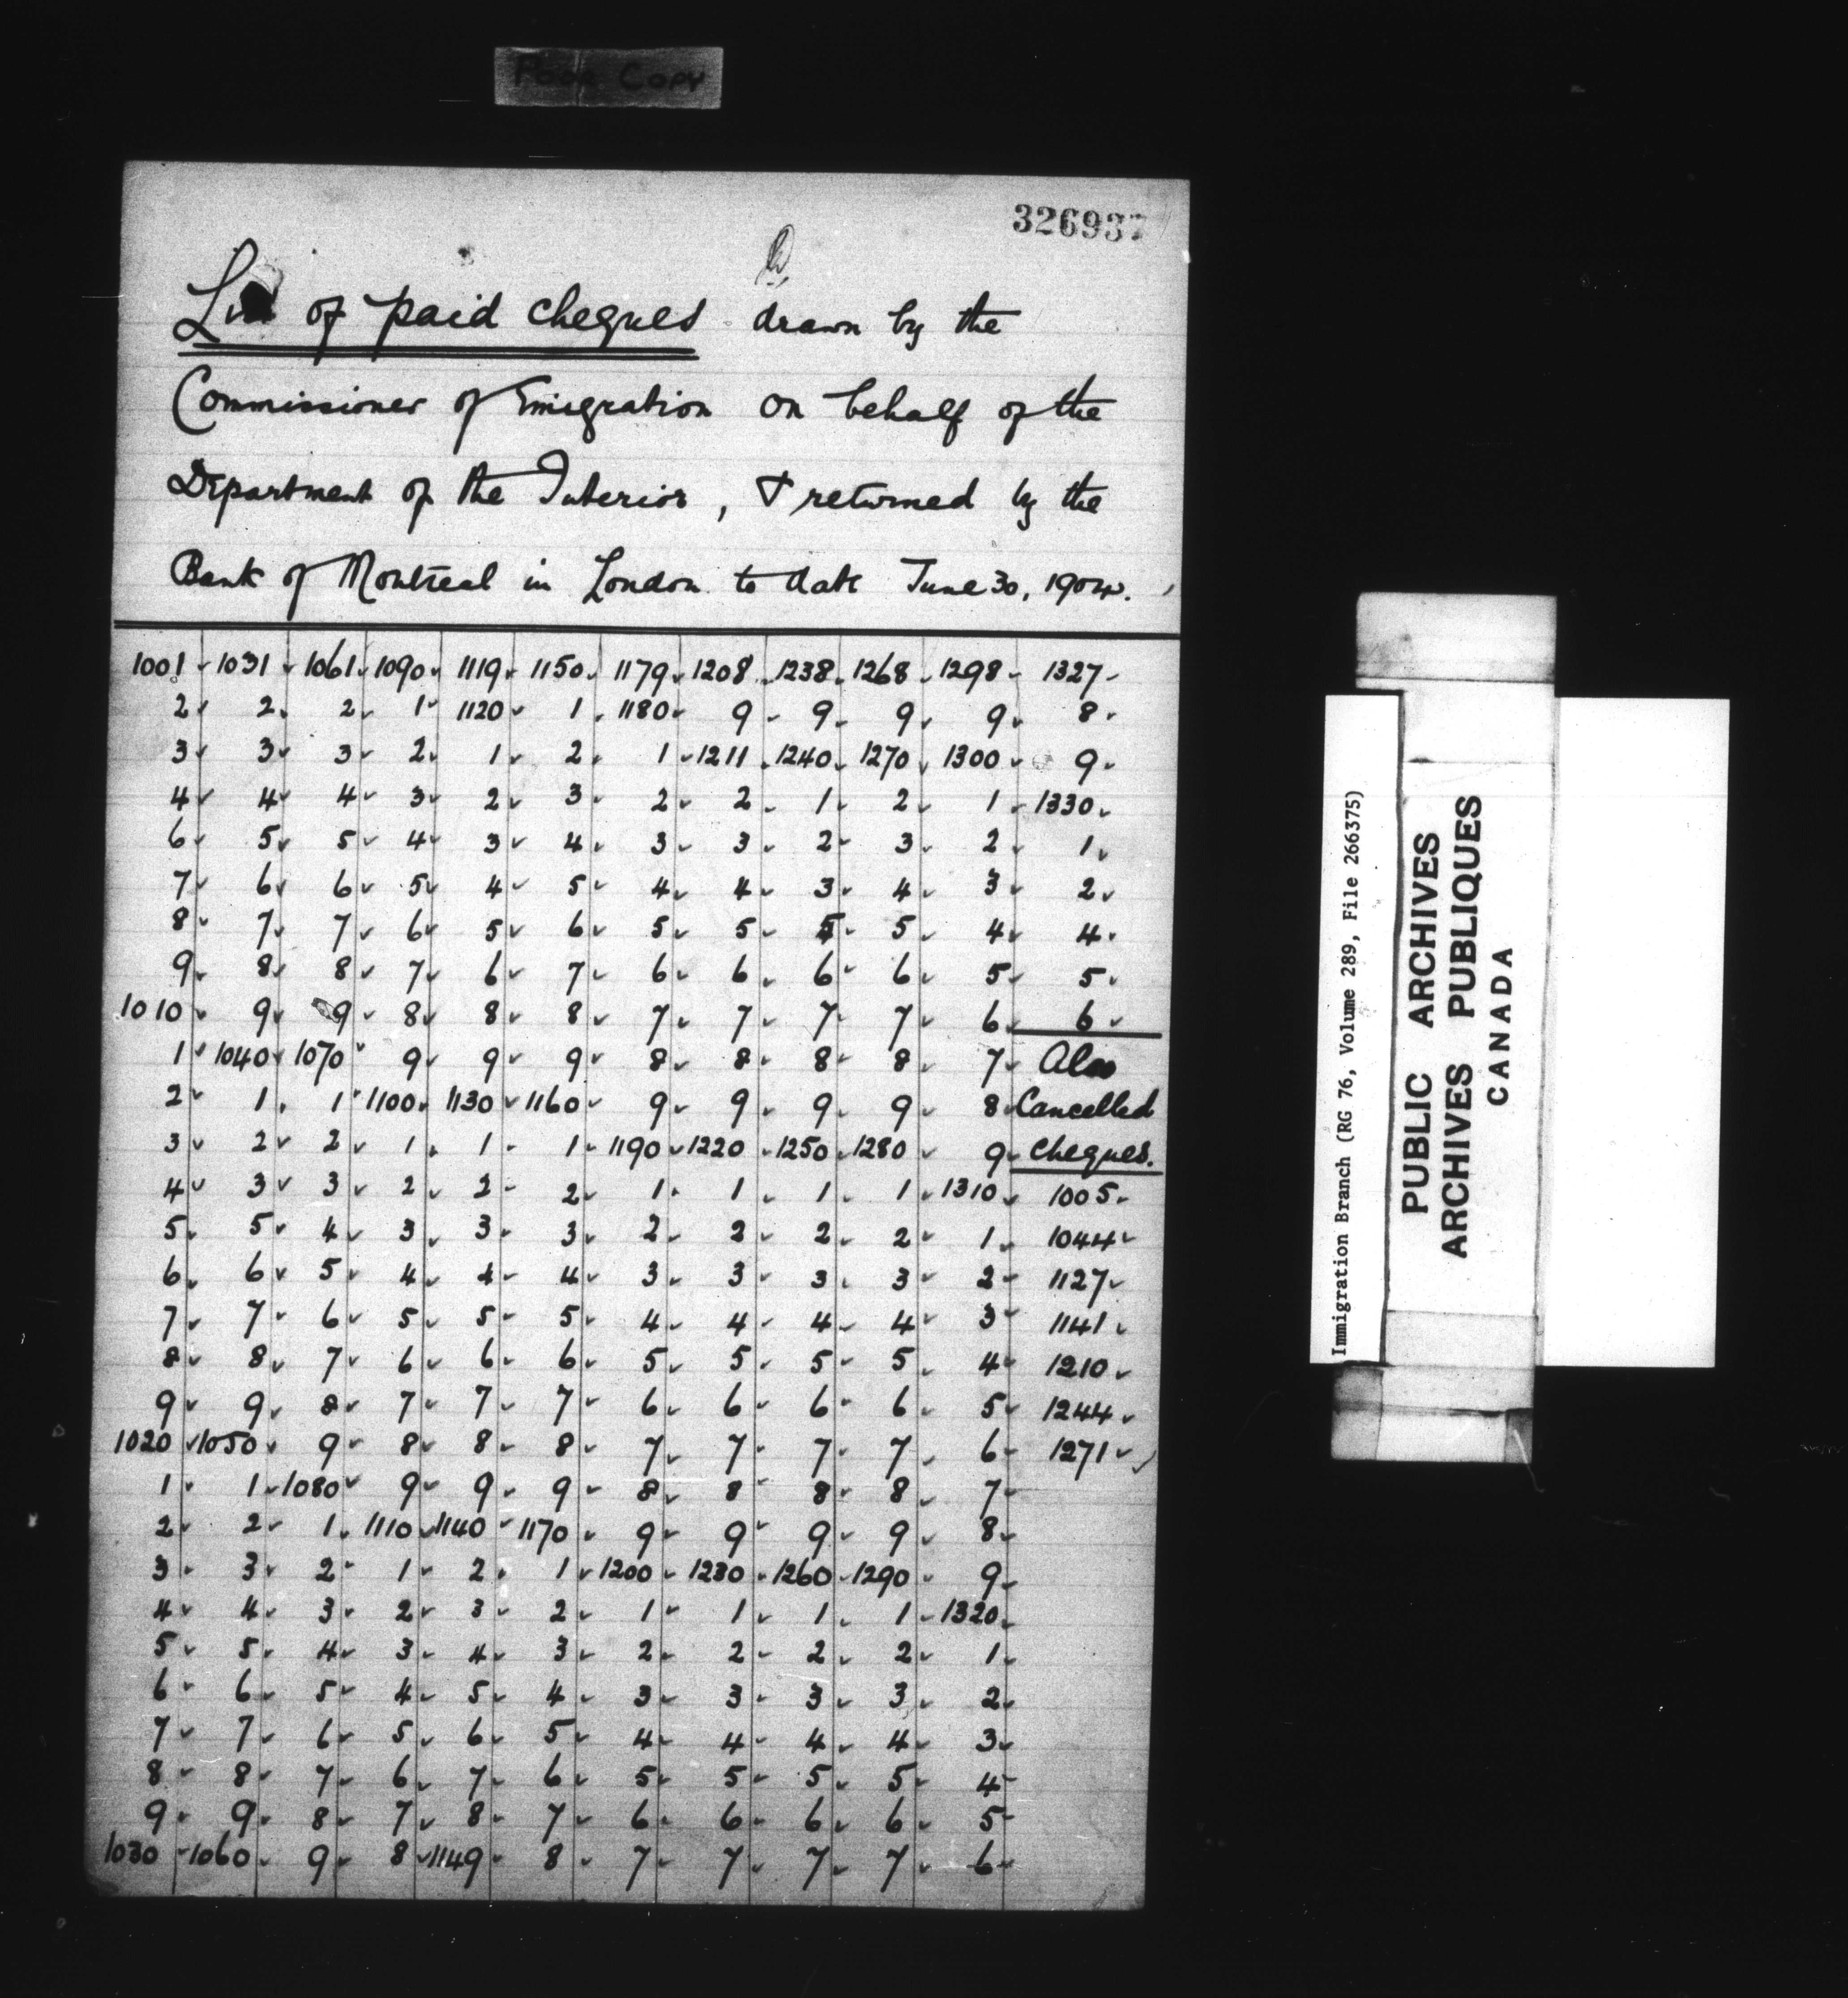 Poor Copy
326937
List of paid cheques drawn by the
Commissioner of Emigration on behalf of the
Department of the Interior, & returned by the
Bank of Montreal in London to date June 30, 1904.
1001 1031 1061 1090 1119 1150 1179 1208 1238 1268 1298 1327
2 2 2 1 1120 1 1180 9 9 9 9 8
3 3 3 2 1 2 1 1211 1240 1270 1300 9
4 4 4 3 2 3 2 2 1 2 1 1330
6 5 5 4 3 4 3 3 2 3 2 1
7 6 6 5 4 5 4 4 3 4 3 2
8 7 7 6 5 6 5 5 5 5 4 4
9 8 8 7 6 7 6 6 6 6 5 5
1010 9 9 8 8 8 7 7 7 7 6 6
1 1040 1070 9 9 9 8 8 8 8 7 Also
2 1 1 1100 1130 1160 9 9 9 9 8 Cancelled
3 2 2 1 1 1 1190 1220 1250 1280 9 Cheques.
4 3 3 2 2 2 1 1 1 1 1310 1005
5 5 4 3 3 3 2 2 2 2 1 1044
6 6 5 4 4 4 3 3 3 3 2 1127
7 7 6 5 5 5 4 4 4 4 3 1141
8 8 7 6 6 6 5 5 5 5 4 1210
9 9 8 7 7 7 6 6 6 6 5 1244
1020 1050 9 8 8 8 7 7 7 7 6 1271
1 1 1080 9 9 9 8 8 8 8 7
2 2 1 1110 1140 1170 9 9 9 9 8
3 3 2 1 2 1 1200 1230 1260 1290 9
4 4 3 2 3 2 1 1 1 1 1320
5 5 4 3 4 3 2 2 2 2 1
6 6 5 4 5 4 3 3 3 3 2
7 7 6 5 6 5 4 4 4 4 3
8 8 7 6 7 6 5 5 5 5 4
9 9 8 7 8 7 6 6 6 6 5
1030 1060 9 8 1149 8 7 7 7 7 6
Immigration Branch (RG 76, Volume 289, File 266375)
PUBLIC ARCHIVES
ARCHIVES PUBLIQUES
CANADA